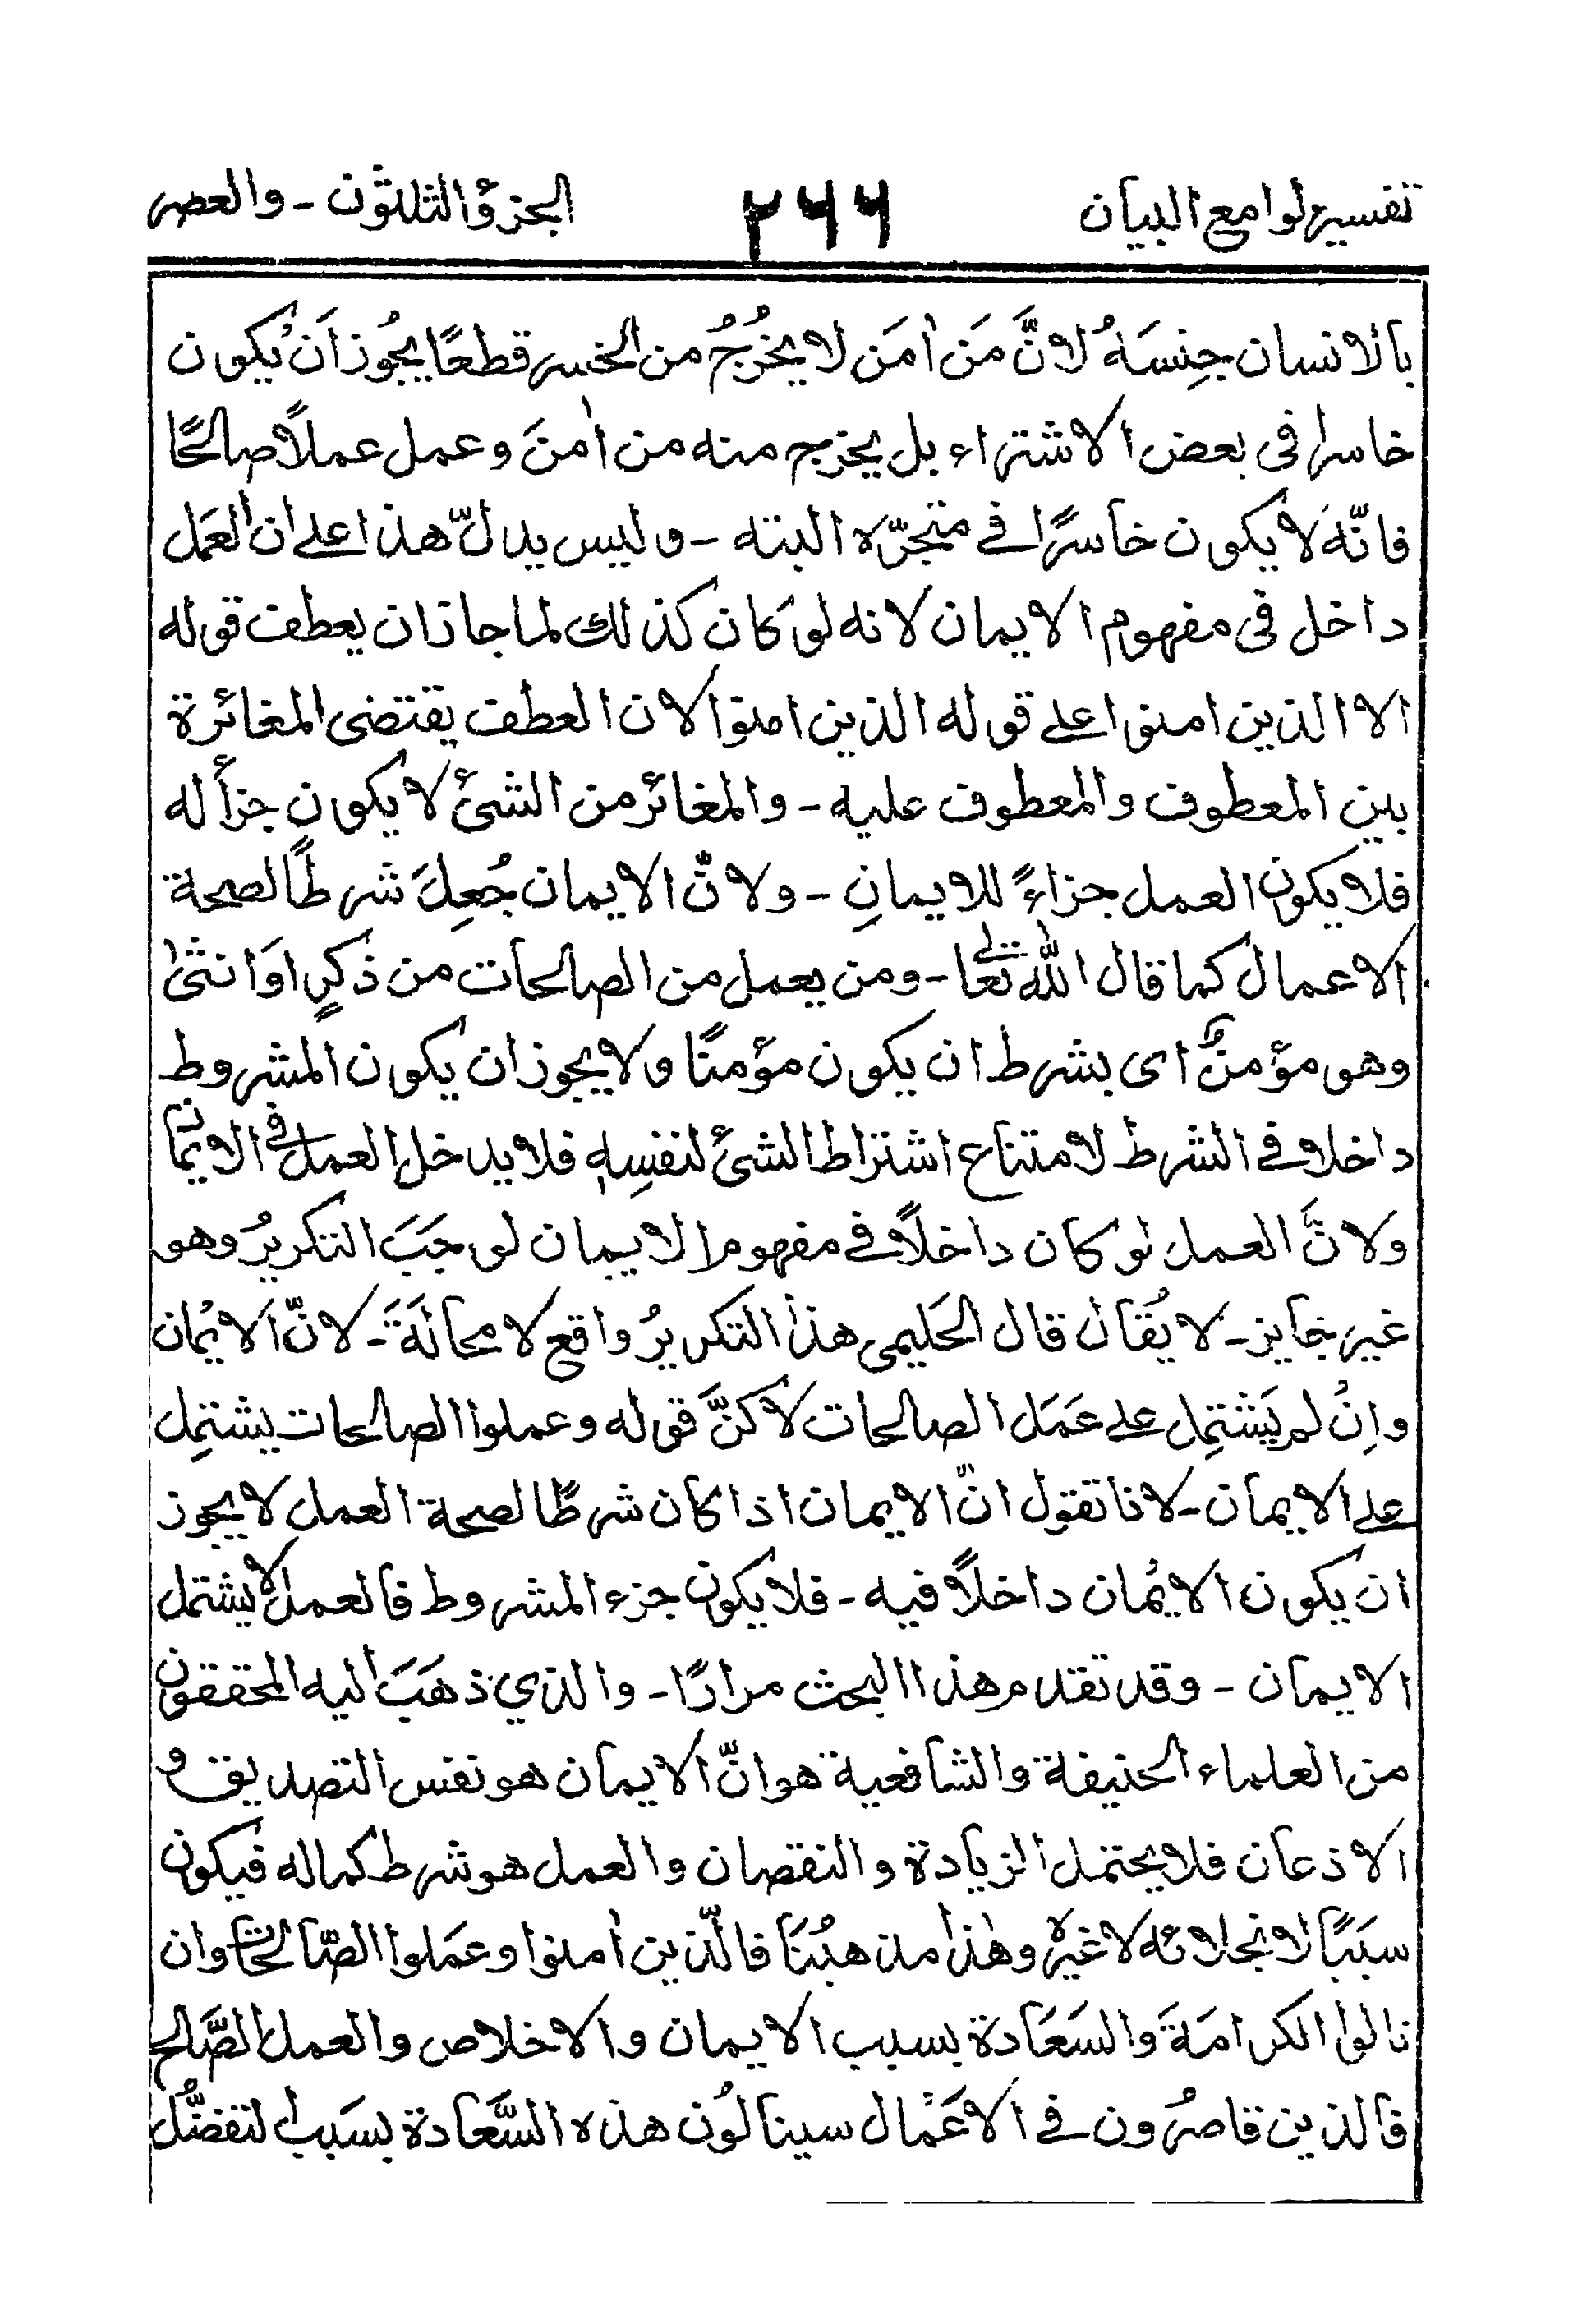 تفسير لوامع البيان ٢٦٦ الجزؤ الثلثون - والعصر
بالانسان جِنسَهُ لانَّ مَن اٰمَن لا يخرُجُ من الخسر قطعًا يجُوز اَنْ يكون
خاسرا فى بعض الاشتراء بل يخرج منه من اٰمنَ وعمل عملاً صالحًا
فانّهٗ لا يكون خاسرًا فى متجرّه البته - وليس يدلّ هذا على ان العَمل
داخل فى مفهوم الايمان لانه لو كان كذلك لما جازان يعطف قوله
الا الذين امنوا على قوله الذين امنوا لان العطف يقتضى المغائرة
بين المعطوف والمعطوف عليه - والمغائر من الشئ لا يكون جزأ له
فلا يكون العمل جزاءً للايمانِ - ولانّ الايمان جُعِلَ شرطًا لصحة
الاعمال كما قال الله تعالى - ومن يعمل من الصالحات من ذكرٍ اوانثىٰ
وهو مؤمنٌ اى بشرط ان يكون مؤمنًا ولا يجوزان يكون المشروط
داخلا فى الشرط لامتناع اشتراط الشئ لنفسِهٖ فلا يدخل العمل فى الايمان
ولانَّ العمل لو كان داخلاً فى مفهوم الايمان لوجَبَ التكريرُ وهو
غير جايز - لا يُقال قال الحَليمى هذا التكريرُ واقع لا محالَةَ - لانّ الايمان
واِنْ لم يَشتمِل على عَمَل الصالحات لاكنَّ قوله وعملوا الصالحات يشتمِل
على الايمان - لانا نقول انّ الايمان اذا كان شرطًا لصحة العمل لا يجوز
ان يكون الايمان داخلاً فيه - فلا يكون جزء المشروط فالعمل لا يشتمل
الايمان - وقد تقدم هذا البحث مرارًا - والذي ذهَبَ اليه المحققون
من العلماء الحنيفة والشافعية هوانّ الايمان هو نفس التصديق و
الاذعان فلا يحتمل الزيادة والنقصان والعمل هو شرط كماله فيكون
سبَبًا لانجلائه لا غيره وهٰذا مذهبُنَا فالّذين اٰمنوا وعمَلوا الصّالحات وان
نالوا الكرامَةَ والسَعَادة بسبب الايمان والاخلاص والعمل الصَّالح
فالذين قاصرُون فى الاعَمال سينالُون هذه السَّعادة بسَبب التفضُّل